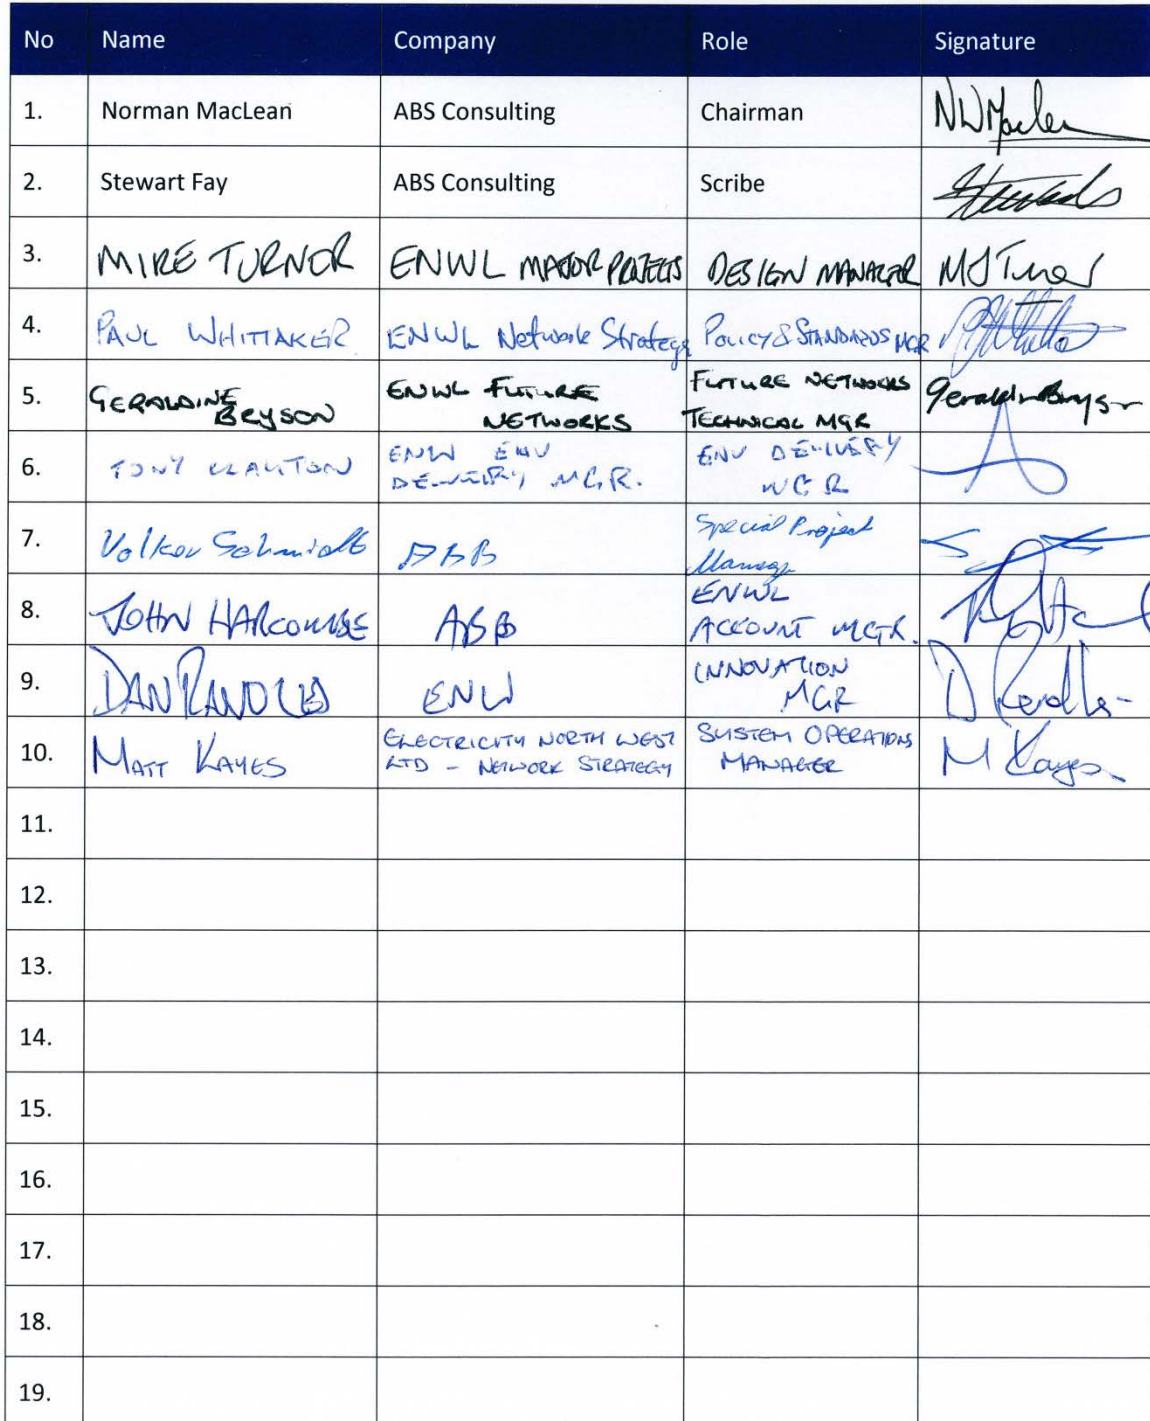 No Name Company Role Signature
1. Norman MacLean ABS Consulting Chairman NWMaclean
2. Stewart Fay ABS Consulting Scribe
3. MIKE TURNER ENWL MAJOR PROJECTS DESIGN MANAGER MJTurner
4. PAUL WHITTAKER ENWL Network Strategy POLICY & STANDARDS MGR
5. GERALDINE BRYSON ENWL FUTURE NETWORKS FUTURE NETWORKS TECHNICAL MGR Geraldine Bryson
6. TONY CLAYTON ENW ENV DELIVERY MGR. ENV DELIVERY MGR
7. Volker Schmidt ABB Special Project Manager
8. JOHN HARCOMBE ABB ENWL ACCOUNT MGR.
9. DAN RANDLES ENW INNOVATION MGR D Randles
10. MATT KAYES ELECTRICITY NORTH WEST LTD - NETWORK STRATEGY SYSTEM OPERATIONS MANAGER M Kayes
11.
12.
13.
14.
15.
16.
17.
18.
19.